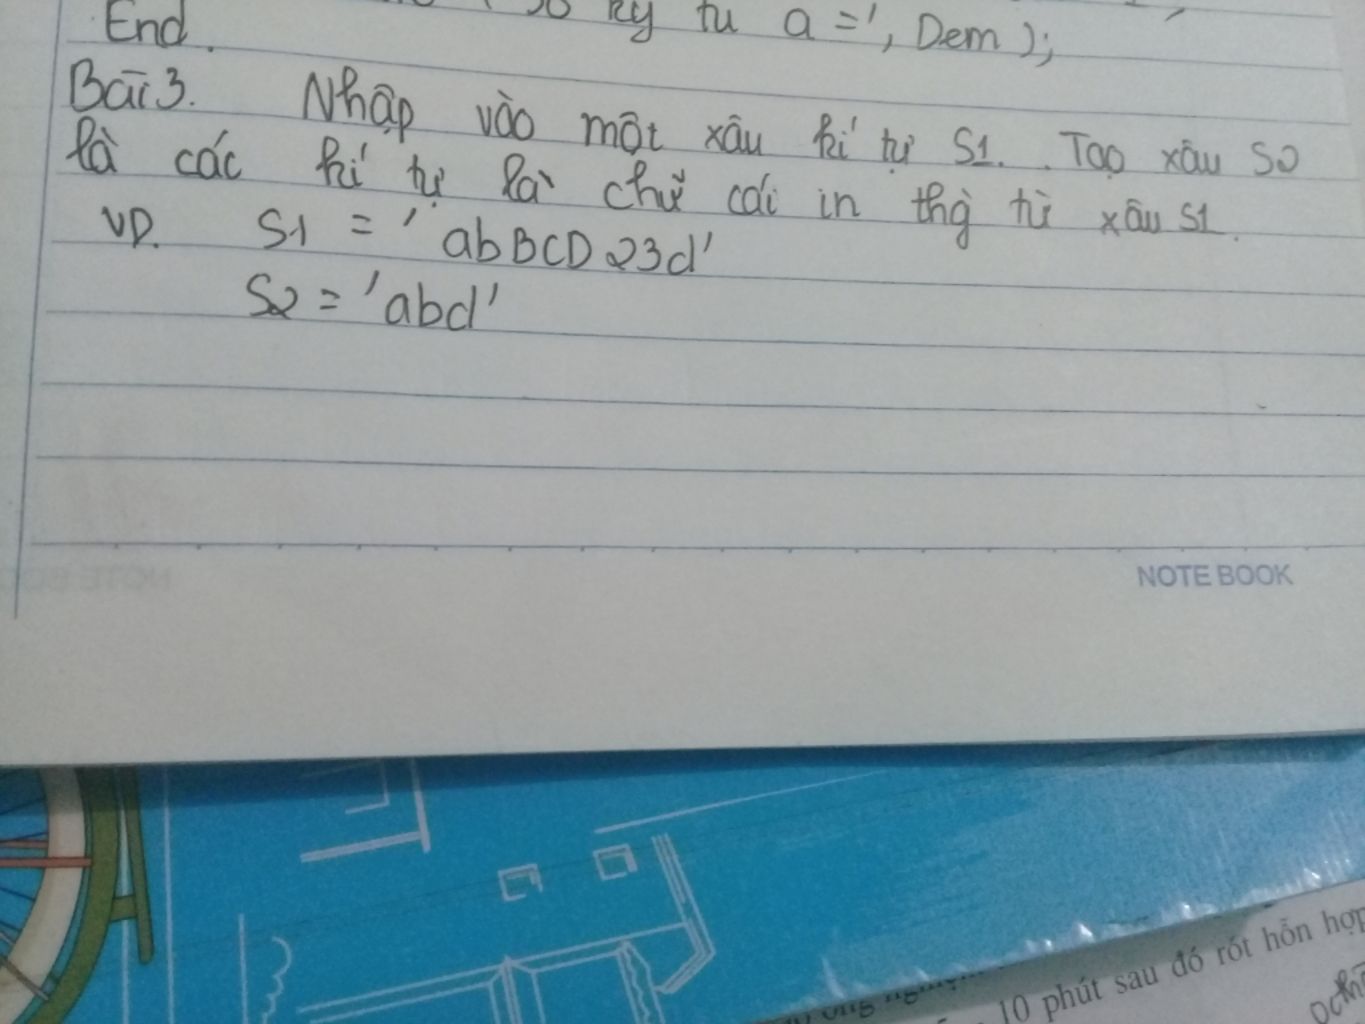 ký tu a =', Dem );
End.
Bài 3. Nhập vào một xâu kí tự S1. Tạo xâu S2
là các kí tự là chữ cái in thg từ xâu S1.
VD. S1 = 'abBCD23d'
S2 = 'abd'
NOTE BOOK
10 phút sau đó rót hỗn hợp